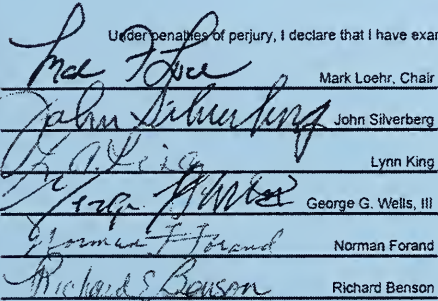 Under penalties of perjury, I declare that I have exar
Mark Loehr, Chair
John Silverberg John Silverberg
Lynn King
George G. Wells, III
Norman F Forand Norman Forand
Richard S Benson Richard Benson